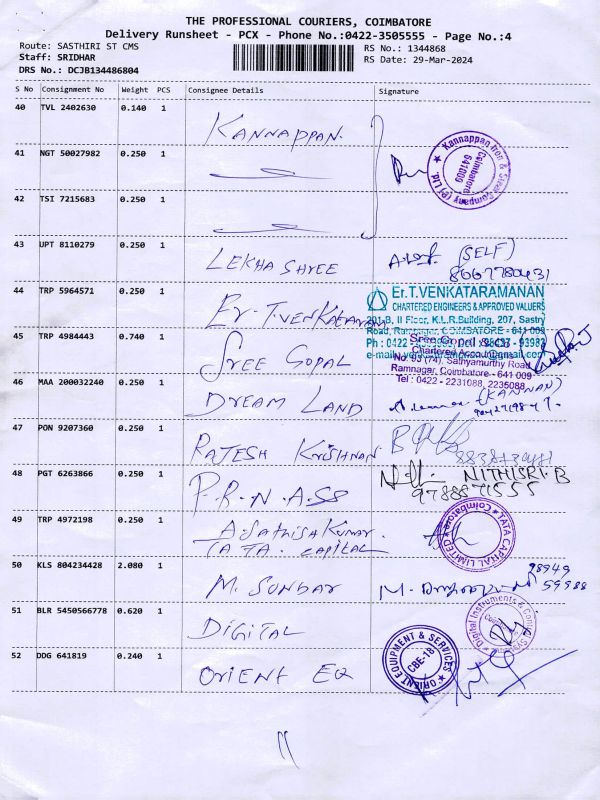 THE PROFESSIONAL COURIERS, COIMBATORE
Delivery Runsheet - PCX - Phone No.:0422-3505555 - Page No.:4
Route: SASTHIRI ST CMS
RS No.: 1344868
Staff: SRIDHAR
RS Date: 29-Mar-2024
DRS No.: DCJB134486804
S No Consignment No Weight PCS Consignee Details Signature
40 TVL 2402630 0.140 1 KANNAPPAN.
Kannappan Iron & Steel Company (P) Ltd.
Coimbatore 641009
41 NGT 50027982 0.250 1
42 TSI 7215683 0.250 1
43 UPT 8110279 0.250 1 LEKHA SHREE (SELF)
8667780431
44 TRP 5964571 0.250 1 Er. T. VENKATARAM
Er.T.VENKATARAMANAN
CHARTERED ENGINEERS & APPROVED VALUERS
201-B, II Floor, K.L.R.Building, 207, Sastry
Road, Ramnagar, COIMBATORE - 641 009
45 TRP 4984443 0.740 1 SREE GOPAL
Chartered Accountant
No. 63 (74), Sathyamurthy Road
Ramnagar, Coimbatore - 641 009
Tel : 0422 - 2231088, 2235088
46 MAA 200032240 0.250 1 DREAM LAND (KANNAN)
47 PON 9207360 0.250 1 RAJESH KRISHNAN
48 PGT 6263866 0.250 1 P.R.N.ASS NITHISRI.B
9788871555
49 TRP 4972198 0.250 1 A. Sathish Kumar.
TATA. CAPITAL
TATA CAPITAL LIMITED
Coimbatore
50 KLS 804234428 2.080 1 M. SUNDAR M.
98949
59588
51 BLR 5450566778 0.620 1 DIGITAL
Digital Instruments & Control
52 DDG 641819 0.240 1 ORIENT EQ
ORIENT EQUIPMENT & SERVICES
CBE-18